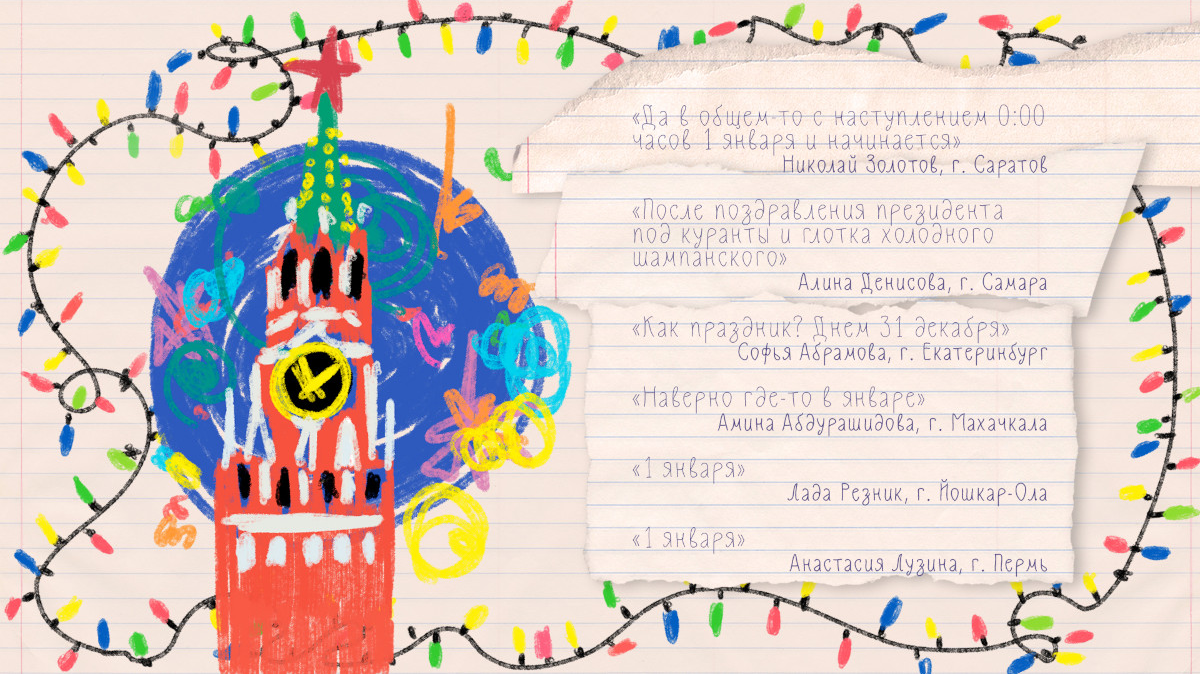 «Да в общем-то с наступлением 0:00
часов 1 января и начинается»
Николай Золотов, г. Саратов
«После поздравления президента
под куранты и глотка холодного
шампанского»
Алина Денисова, г. Самара
«Как праздник? Днем 31 декабря»
Софья Абрамова, г. Екатеринбург
«Наверно где-то в январе»
Амина Абдурашидова, г. Махачкала
«1 января»
Лада Резник, г. Йошкар-Ола
«1 января»
Анастасия Лузина, г. Пермь